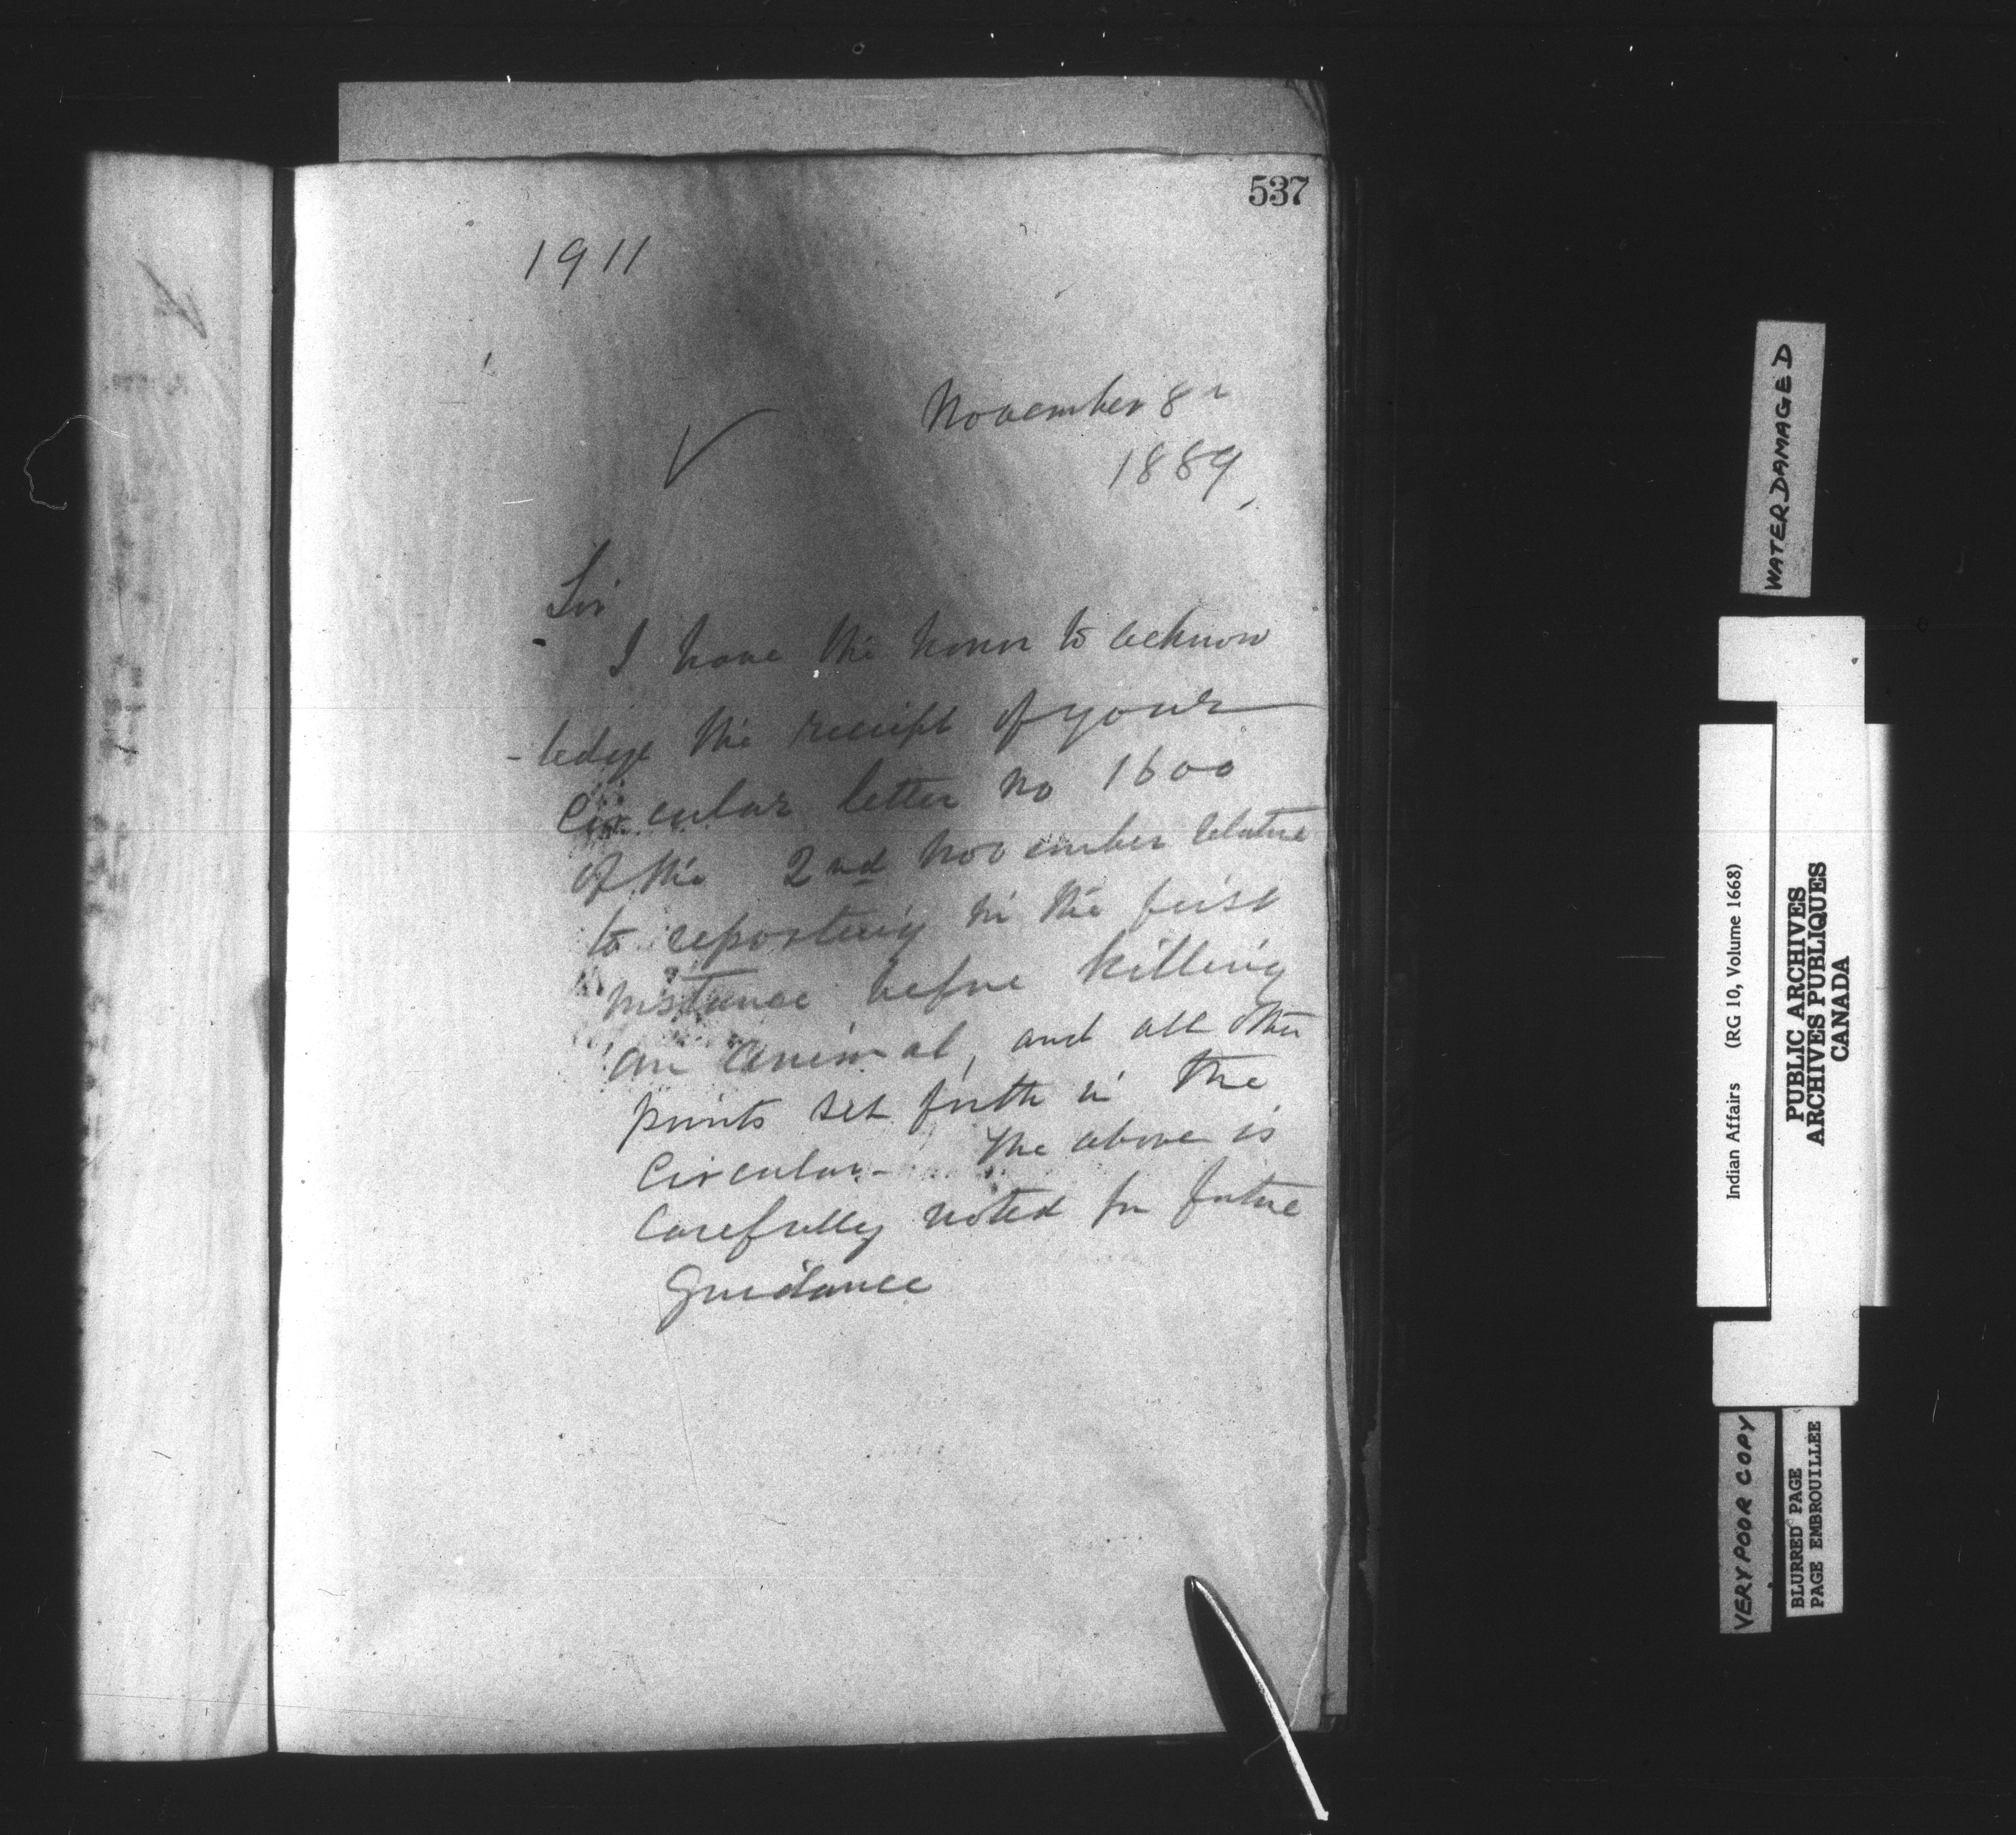 537
1911
November 8th
1889
Sir
I have the honor to acknow
-ledge the receipt of your
Circular letter no 1600
of the 2nd November relative
to reporting in the first
instance before killing
an animal, and all other
points set forth in the
Circular - The above is
Carefully noted for future
Guidance
WATER DAMAGED
Indian Affairs (RG 10, Volume 1668)
PUBLIC ARCHIVES
ARCHIVES PUBLIQUES
CANADA
VERY POOR COPY
BLURRED PAGE
PAGE EMBROUILLEE